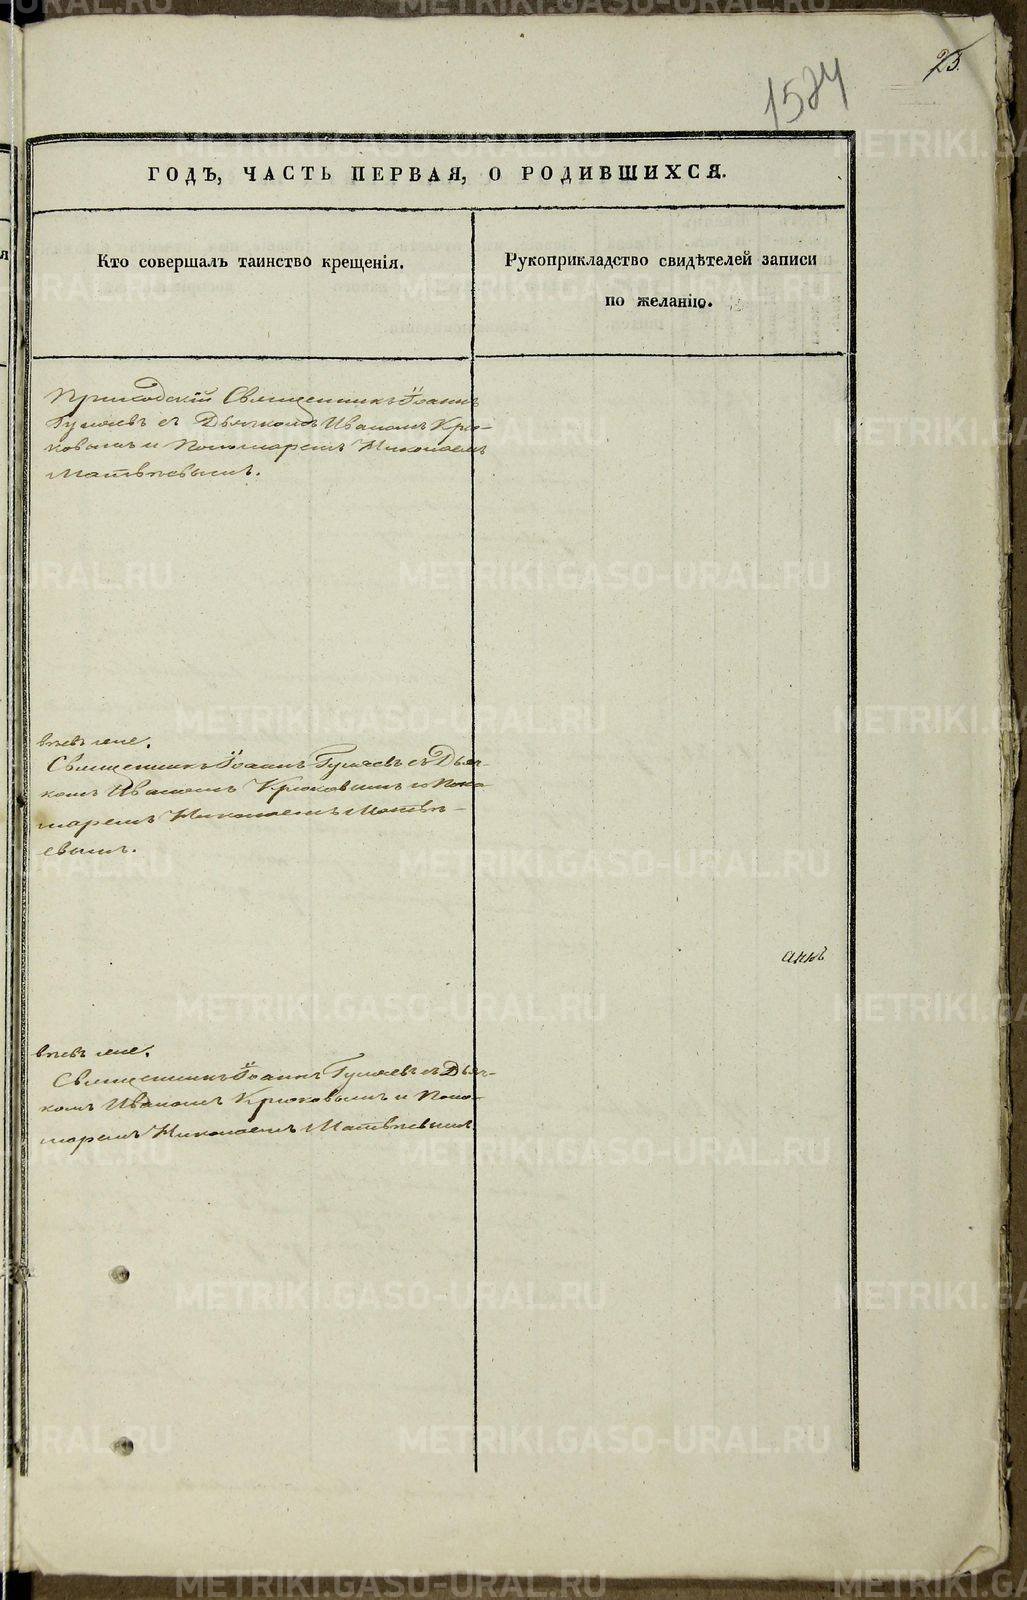 25.
1574
ГОДЪ, ЧАСТЬ ПЕРВАЯ, О РОДИВШИХСЯ.
Кто совершалъ таинство крещенія.
Рукоприкладство свидѣтелей записи
по желанію.
Приходскій Священникъ Іоаннъ
Гуляевъ съ Дьячкомъ Иваномъ Крю-
ковымъ и Пономаремъ Николаемъ
Матвѣевымъ.
Священникъ Іоаннъ Гуляевъ съ Дьяч-
комъ Иваномъ Крюковымъ и Поно-
маремъ Николаемъ Матвѣ-
евымъ.
Священникъ Іоаннъ Гуляевъ съ Дьяч-
комъ Иваномъ Крюковымъ и Поно-
маремъ Николаемъ Матвѣевымъ
METRIKI.GASO-URAL.RU